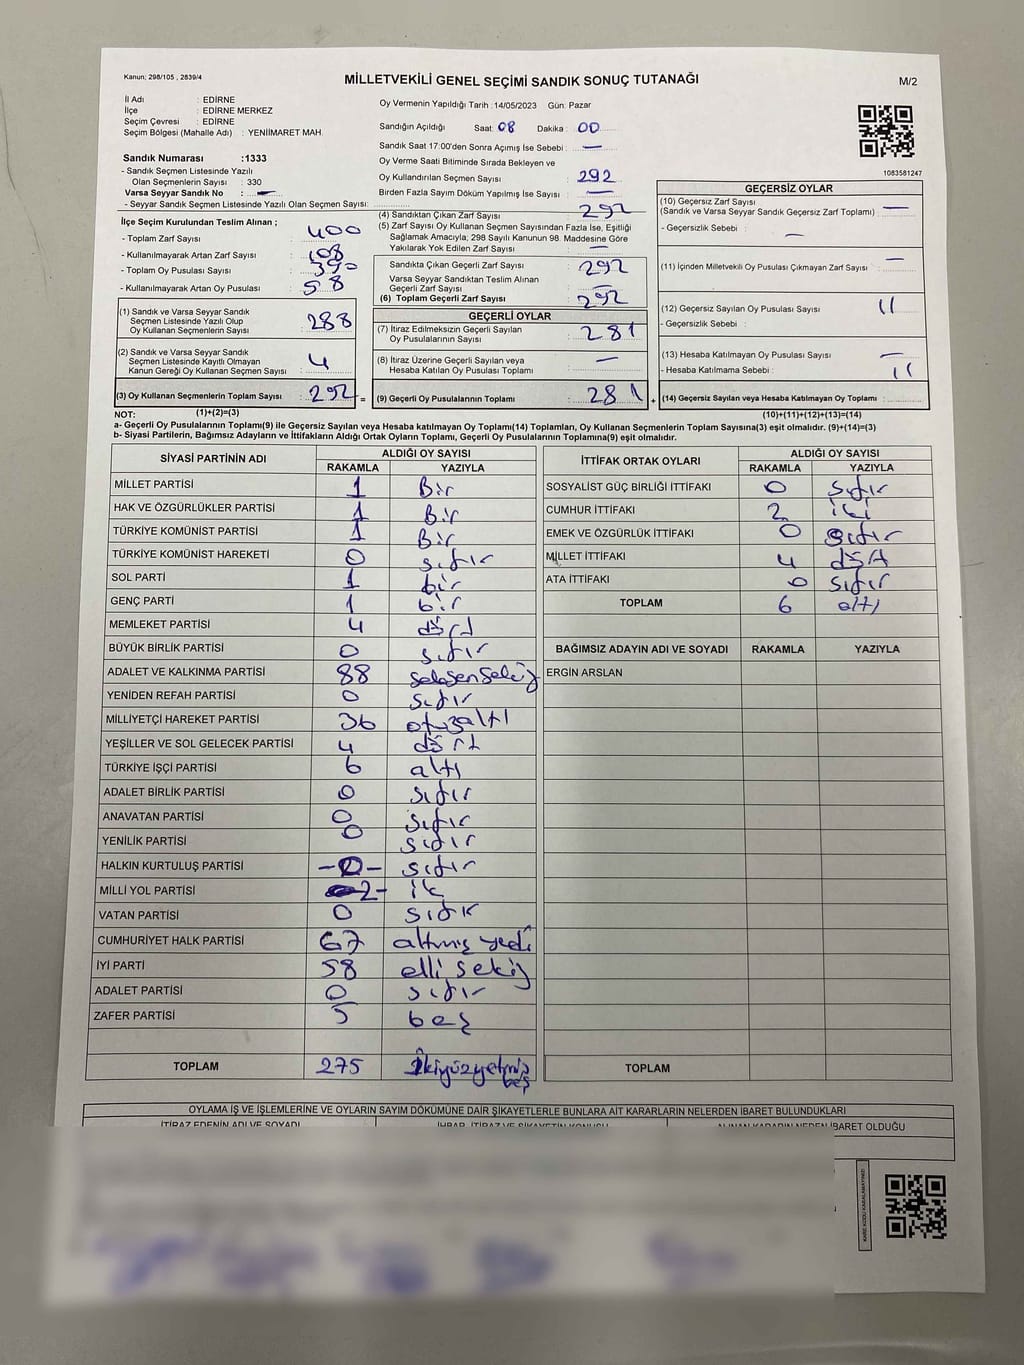 Kanun; 298/105 , 2839/4
MİLLETVEKİLİ GENEL SEÇİMİ SANDIK SONUÇ TUTANAĞI
M/2
İl Adı : EDİRNE
İlçe : EDİRNE MERKEZ
Seçim Çevresi : EDİRNE
Seçim Bölgesi (Mahalle Adı) : YENİİMARET MAH.
Oy Vermenin Yapıldığı Tarih : 14/05/2023 Gün: Pazar
Sandığın Açıldığı Saat: 08 Dakika : 00
Sandık Saat 17:00'den Sonra Açımış İse Sebebi : —
Oy Verme Saati Bitiminde Sırada Bekleyen ve
Oy Kullandırılan Seçmen Sayısı : 292
Birden Fazla Sayım Döküm Yapılmış İse Sayısı : —
1083581247
Sandık Numarası : 1333
- Sandık Seçmen Listesinde Yazılı
Olan Seçmenlerin Sayısı : 330
Varsa Seyyar Sandık No : —
- Seyyar Sandık Seçmen Listesinde Yazılı Olan Seçmen Sayısı:
İlçe Seçim Kurulundan Teslim Alınan ;
- Toplam Zarf Sayısı : 400
- Kullanılmayarak Artan Zarf Sayısı : 108
- Toplam Oy Pusulası Sayısı : 350
- Kullanılmayarak Artan Oy Pusulası : 58
(1) Sandık ve Varsa Seyyar Sandık
Seçmen Listesinde Yazılı Olup
Oy Kullanan Seçmenlerin Sayısı : 288
(2) Sandık ve Varsa Seyyar Sandık
Seçmen Listesinde Kayıtlı Olmayan
Kanun Gereği Oy Kullanan Seçmen Sayısı : 4
(3) Oy Kullanan Seçmenlerin Toplam Sayısı : 292 =
(4) Sandıktan Çıkan Zarf Sayısı : 292
(5) Zarf Sayısı Oy Kullanan Seçmen Sayısından Fazla İse, Eşitliği
Sağlamak Amacıyla; 298 Sayılı Kanunun 98. Maddesine Göre
Yakılarak Yok Edilen Zarf Sayısı : —
Sandıkta Çıkan Geçerli Zarf Sayısı : 292
Varsa Seyyar Sandıktan Teslim Alınan
Geçerli Zarf Sayısı : —
(6) Toplam Geçerli Zarf Sayısı : 292
GEÇERLİ OYLAR
(7) İtiraz Edilmeksizin Geçerli Sayılan
Oy Pusulalarının Sayısı : 281
(8) İtiraz Üzerine Geçerli Sayılan veya
Hesaba Katılan Oy Pusulası Toplamı : —
(9) Geçerli Oy Pusulalarının Toplamı : 281 +
GEÇERSİZ OYLAR
(10) Geçersiz Zarf Sayısı
(Sandık ve Varsa Seyyar Sandık Geçersiz Zarf Toplamı) : —
- Geçersizlik Sebebi : —
(11) İçinden Milletvekili Oy Pusulası Çıkmayan Zarf Sayısı : —
(12) Geçersiz Sayılan Oy Pusulası Sayısı : 11
- Geçersizlik Sebebi :
(13) Hesaba Katılmayan Oy Pusulası Sayısı : —
- Hesaba Katılmama Sebebi : 11
(14) Geçersiz Sayılan veya Hesaba Katılmayan Oy Toplamı :
NOT: (1)+(2)=(3) (10)+(11)+(12)+(13)=(14)
a- Geçerli Oy Pusulalarının Toplamı(9) ile Geçersiz Sayılan veya Hesaba katılmayan Oy Toplamı(14) Toplamları, Oy Kullanan Seçmenlerin Toplam Sayısına(3) eşit olmalıdır. (9)+(14)=(3)
b- Siyasi Partilerin, Bağımsız Adayların ve İttifakların Aldığı Ortak Oyların Toplamı, Geçerli Oy Pusulalarının Toplamına(9) eşit olmalıdır.
SİYASİ PARTİNİN ADI ALDIĞI OY SAYISI
RAKAMLA YAZIYLA
MİLLET PARTİSİ 1 Bir
HAK VE ÖZGÜRLÜKLER PARTİSİ 1 Bir
TÜRKİYE KOMÜNİST PARTİSİ 1 Bir
TÜRKİYE KOMÜNİST HAREKETİ 0 sıfır
SOL PARTİ 1 bir
GENÇ PARTİ 1 bir
MEMLEKET PARTİSİ 4 dört
BÜYÜK BİRLİK PARTİSİ 0 sıfır
ADALET VE KALKINMA PARTİSİ 88 seksensekiz
YENİDEN REFAH PARTİSİ 0 sıfır
MİLLİYETÇİ HAREKET PARTİSİ 36 otuzaltı
YEŞİLLER VE SOL GELECEK PARTİSİ 4 dört
TÜRKİYE İŞÇİ PARTİSİ 6 altı
ADALET BİRLİK PARTİSİ 0 sıfır
ANAVATAN PARTİSİ 0 sıfır
YENİLİK PARTİSİ 0 sıfır
HALKIN KURTULUŞ PARTİSİ -0- sıfır
MİLLİ YOL PARTİSİ 2- ik
VATAN PARTİSİ 0 sıfır
CUMHURİYET HALK PARTİSİ 67 altmış yedi
İYİ PARTİ 58 elli sekiz
ADALET PARTİSİ 0 sıfır
ZAFER PARTİSİ 5 beş
TOPLAM 275 İkiyüzyetmiş beş
İTTİFAK ORTAK OYLARI ALDIĞI OY SAYISI
RAKAMLA YAZIYLA
SOSYALİST GÜÇ BİRLİĞİ İTTİFAKI 0 sıfır
CUMHUR İTTİFAKI 2 iki
EMEK VE ÖZGÜRLÜK İTTİFAKI 0 sıfır
MİLLET İTTİFAKI 4 dört
ATA İTTİFAKI 0 sıfır
TOPLAM 6 altı
BAĞIMSIZ ADAYIN ADI VE SOYADI RAKAMLA YAZIYLA
ERGİN ARSLAN
TOPLAM
OYLAMA İŞ VE İŞLEMLERİNE VE OYLARIN SAYIM DÖKÜMÜNE DAİR ŞİKAYETLERLE BUNLARA AİT KARARLARIN NELERDEN İBARET BULUNDUKLARI
İTİRAZ EDENİN ADI VE SOYADI İHBAR, İTİRAZ VE ŞİKAYETİN KONUSU ALINAN KARARIN NEDEN İBARET OLDUĞU
KARE KODU KARALAMAYINIZ!